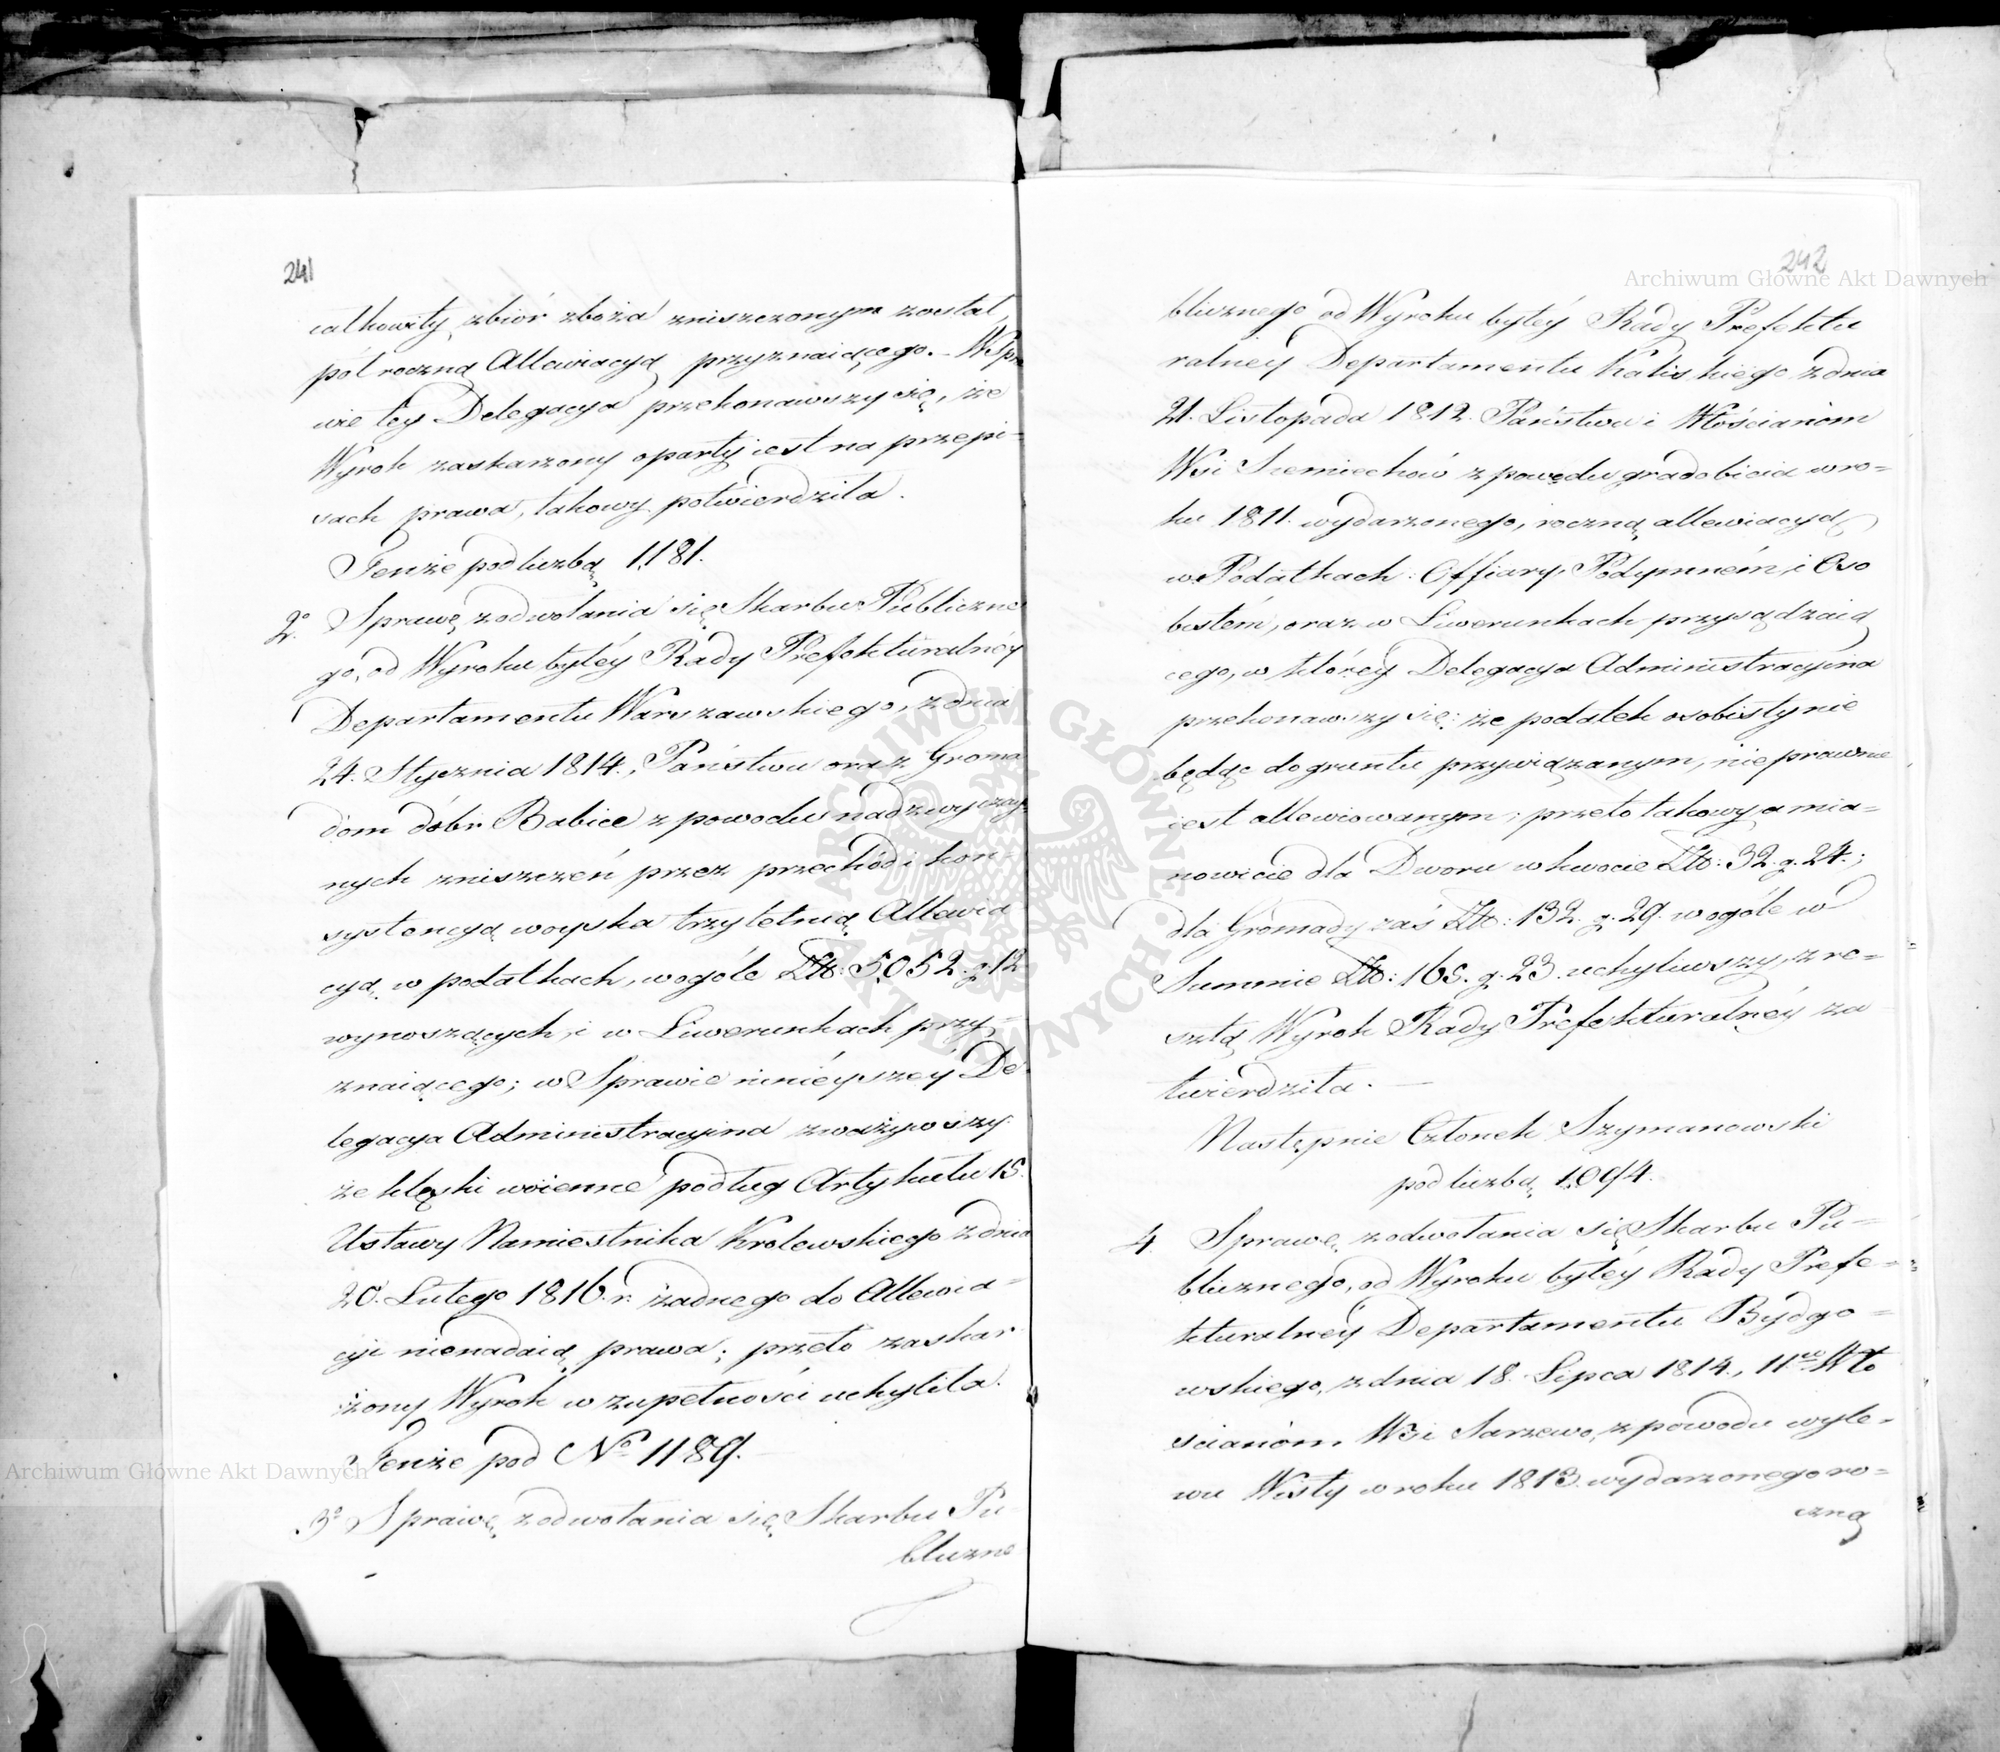 241
całkowity zbiór zboża zniszczonym został,
pół roczną Allewiacyą przyznaiącego. – W Spra
wie tey Delegacya przekonawszy się, że
Wyrok zaskarzony oparty iest na przepi-
sach prawa, takowy potwierdziła.
Tenże pod liczbą 1,181.
2o. Sprawę z odwołania się Skarbu Publiczne
go, od Wyroku byłéy Rady Prefekturalnéy
Departamentu Warszawskiego, z dnia
24. Stycznia 1814., Państwu oraz Groma
dom dóbr Babice z powodu nadzwyczay-
nych zniszczeń przez przechód i kon-
systencyą woyska trzyletnią Allewia
cyą w podatkach, wogóle Złt: 5,052. g. 12
wynoszących, i w Liwerunkach przy-
znaiącego; w Sprawie ninieyszéy De-
legacya Administracyina zważywszy
że klęski woienne podług Artykułu 15.
Ustawy Namiestnika Krolewskiego z dnia
20. Lutego 1816. r. żadnego do Allewia-
cyi nienadaią prawa; przeto zaskar
żony Wyrok w zupełności uchyliła.
Tenże pod No 1189.
3o Sprawę z odwołania się Skarbu Pu-
bliczne
242
blicznego od Wyroku byłéy Rady Prefektu
ralney Departamentu Kaliskiego z dnia
21. Listopada 1812. Państwu i Włościanom
Wsi Siemiechów z powodu gradobicia w ro-
ku 1811. wydarzonego, roczną allewiacyą
w Podatkach: Offiary, Podymném, i Oso
bistém, oraz w Liwerunkach przysądzaią
cego, w któréy Delegacya Administracyina
przekonawszy się: że podatek osobisty nie
będąc do gruntu przywiązanym, nie prawnie
iest allewiowanym; przeto takowy a mia-
nowicie dla Dworu w kwocie Złt: 32. g. 24.;
dla Gromady zaś Złt: 132. g. 29. wogóle w
Summie Złt: 165. g. 23. uchyliwszy, z re-
sztą Wyrok Rady Prefekturalnéy za
twierdziła. —
Następnie Członek Szymanowski
pod liczbą 1,094.
4. Sprawę z odwołania się Skarbu Pu-
blicznego, od Wyroku byłéy Rady Prefe-
kturalnéy Departamentu Bydgo-
wskiego, z dnia 18. Lipca 1814., 11u Wło
ścianóm Wsi Sarzewo, z powodu wyle-
wu Wisły w roku 1813. wydarzonego ro-
czną
Archiwum Główne Akt Dawnych
Archiwum Główne Akt Dawnych
ARCHIWUM GŁÓWNE AKT DAWNYCH